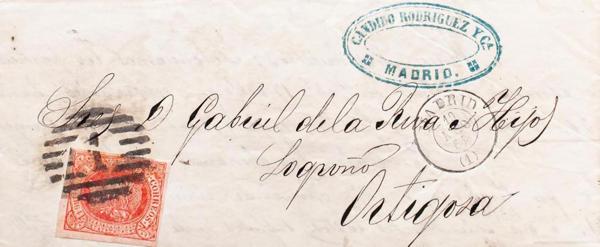 CANDIDO RODRIGUEZ Y Cª
MADRID.
DRID
(1)
Sres D. Gabriel de la Riva e Hijos
Logroño
Ortigosa
1
CORREOS